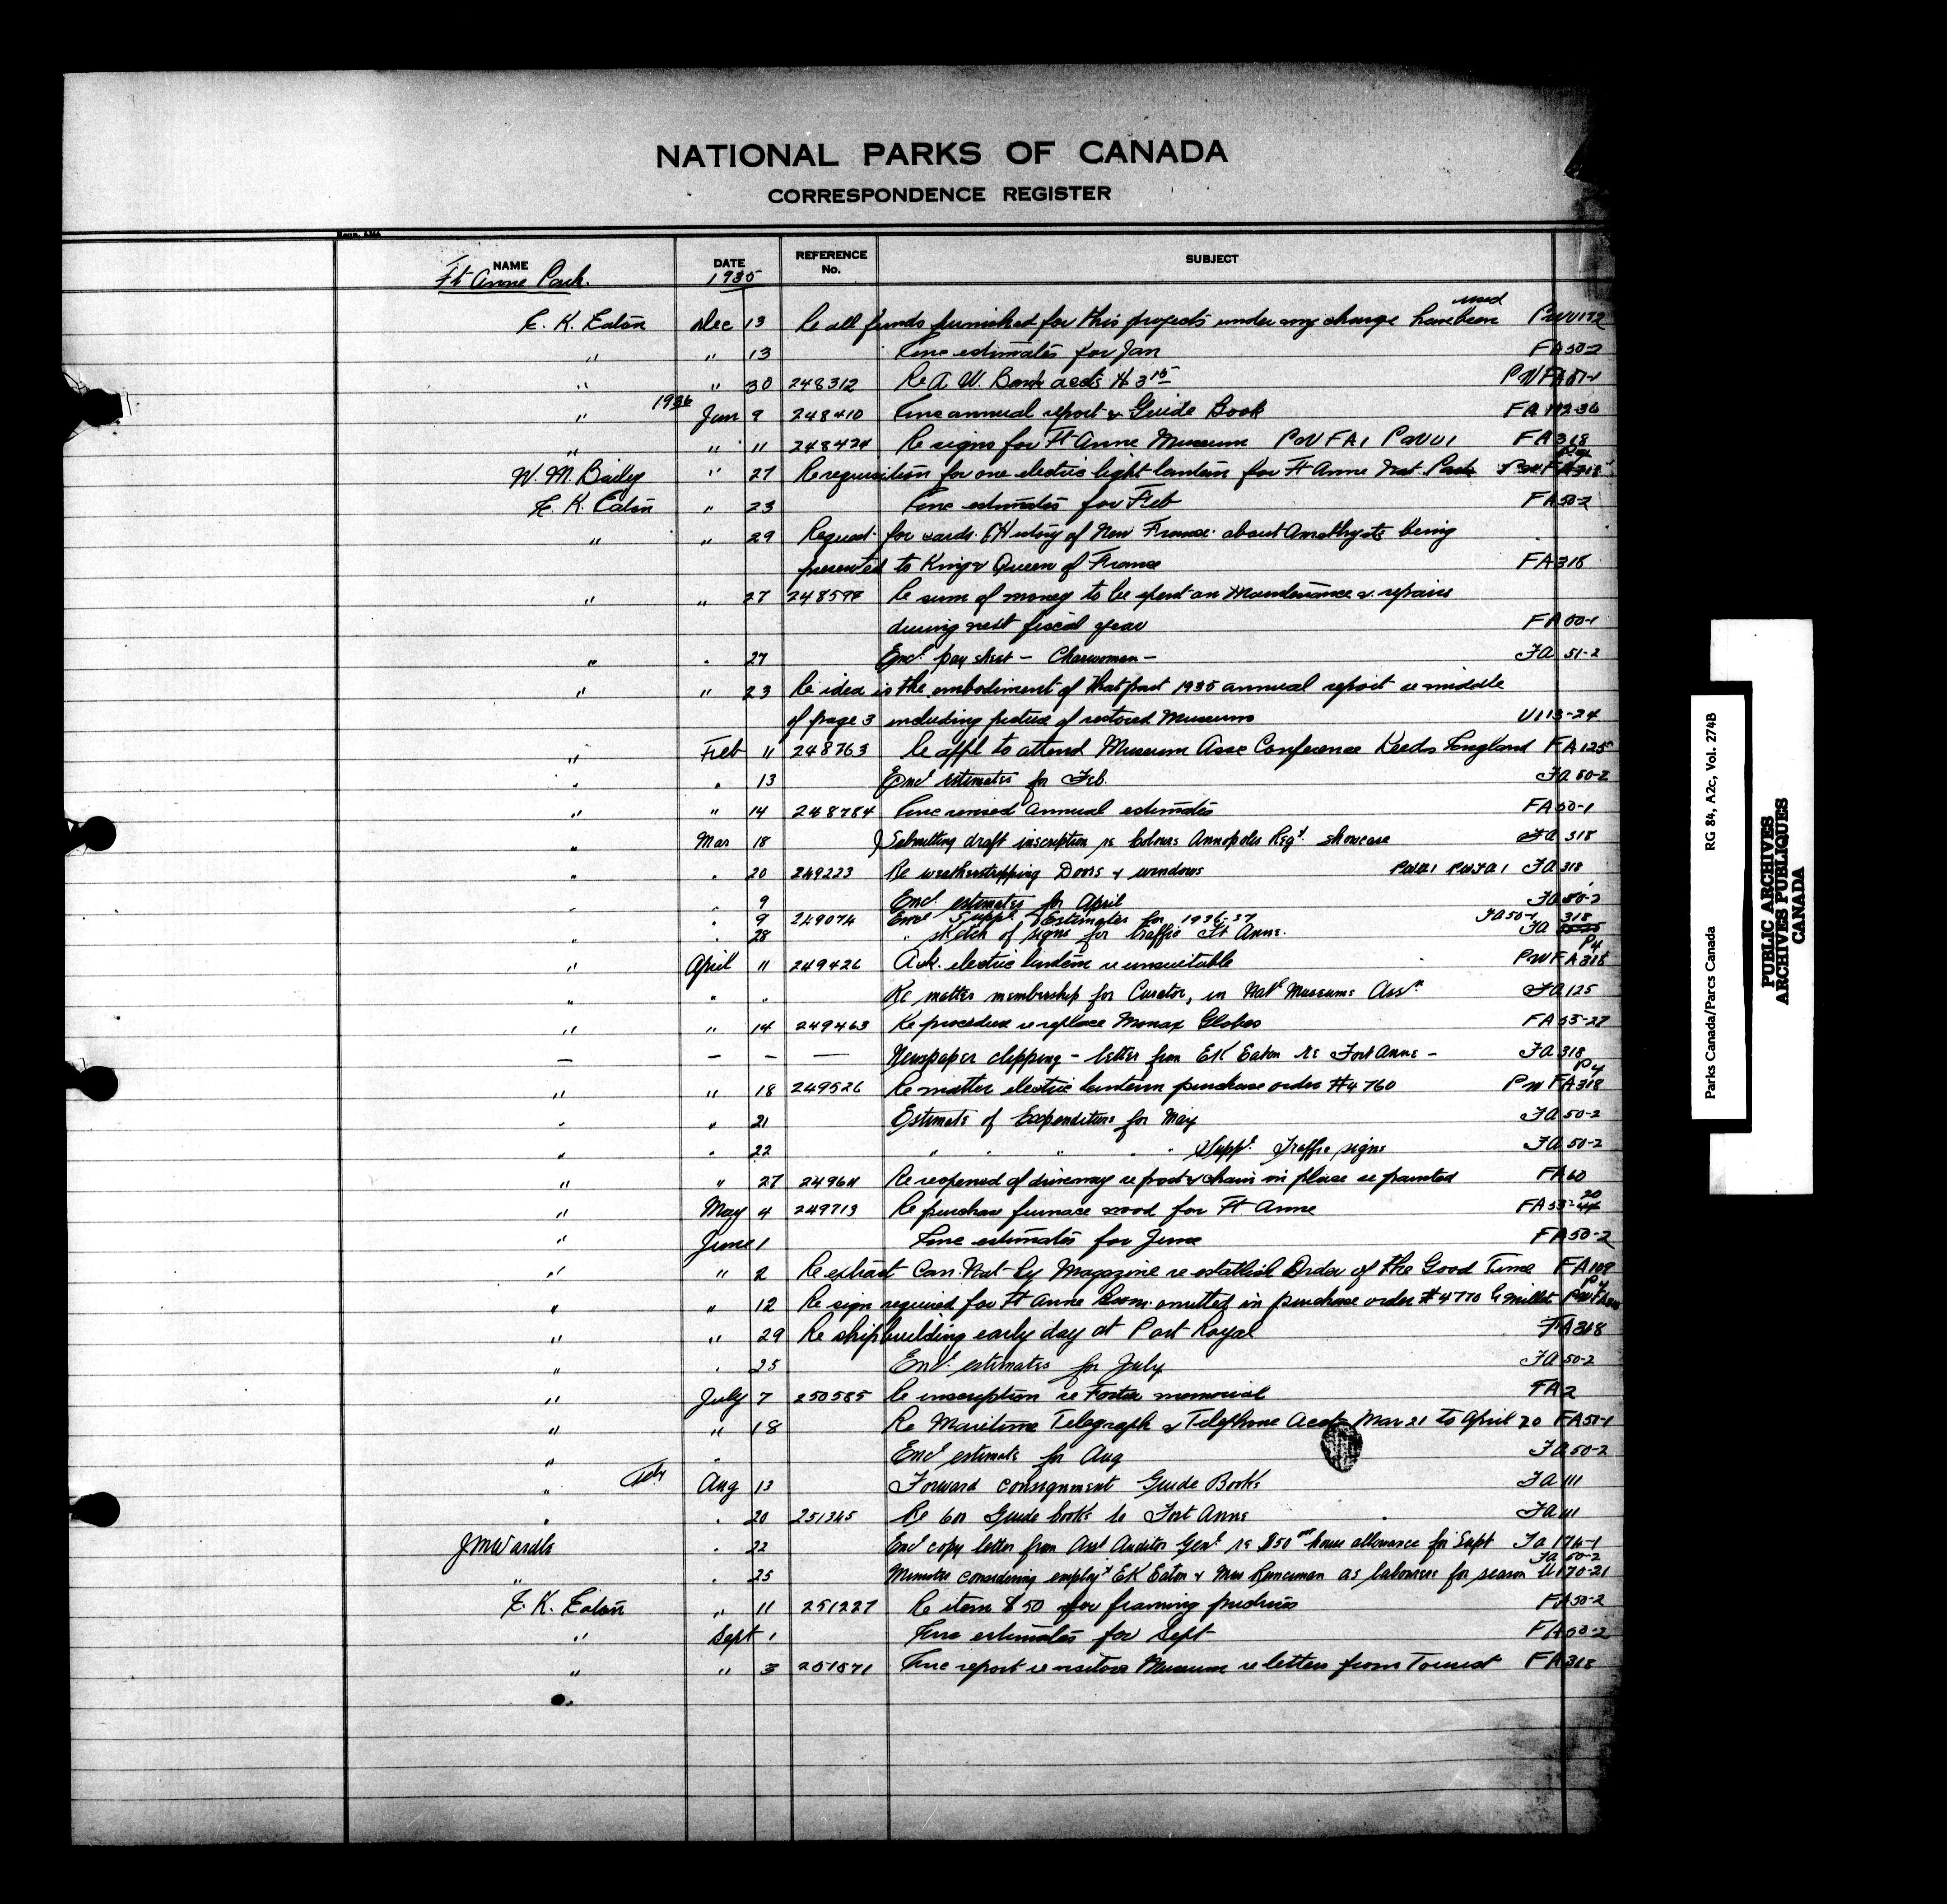 NATIONAL PARKS OF CANADA
CORRESPONDENCE REGISTER
NAME DATE REFERENCE No. SUBJECT
Ft Anne Park. 1935
E. K. Eaton Dec 13 Re all funds furnished for this projects under my charge have been used PWU172
" " 13 Enc estimates for Jan FA50-2
" " 30 248312 Re A. W. Banks accts
" 1936 Jan 9 248410 Enc annual report & Guide Book FA112-36
" " 11 248424 Re signs for Ft Anne Museum PWFA1 PWU1 FA318
W. M. Baily " 27 Re requisition for one electric light lantern for Ft Anne Nat. Park
E. K. Eaton " 23 Enc estimates for Feb FA50-2
" " 29 Request for cards History of New France about Amethysts being
presented to King & Queen of France FA318
" " 27 Re sum of money to be spent on Maintenance & repairs
during next fiscal year FA50-1
" " 27 Encl. pay sheet - Charwoman - FA 51-2
" " 23 Re idea is the embodiment of that part 1935 annual report re middle
of page 3 including picture of restored Museum U113-24
" Feb 11 248763 Re appl to attend Museum Assc Conference Leeds England FA125
" " 13 Encl estimates for Feb. FA 50-2
" " 14 248784 Enc revised annual estimates FA50-1
" Mar 18 Submitting draft inscription re Colours Annapolis Regt. showcase FA 318
" " 20 249223 Re weatherstripping Doors & windows PWU1 PWFA1 FA318
" " 9 Encl. estimates for April FA50-2
" 9 249074 Encl Suppl. Estimates for 1936-37 FA50-1
" " 28 " sketch of signs for traffic Ft Anne. FA 318
" April 11 249426 Ack. electric lantern re unsuitable PWFA318 P4
" " " Re matter membership for Curator, in Natl Museums Assn FA125
" " 14 249463 Re procedure re replace Monax Globes FA55-27
— — — — Newspaper clipping - letter from EK Eaton re Fort Anne - FA318
" " 18 249526 Re matter electric lantern purchase order #4760 PWFA318 P4
" " 21 Estimate of Expenditure for May FA50-2
" " 22 " " " " " Suppl. Traffic signs FA50-2
" " 27 Re reopened of driveway re post & chain in place re painted FA60
" May 4 249713 Re purchase furnace wood for Ft Anne
" June 1 Enc estimates for June FA50-2
" " 2 Re extract Can Nat Ry Magazine re establish Order of the Good Time FA109
" " 12 Re sign required for Ft Anne omitted in purchase order #4770
" " 29 Re shipbuilding early day at Port Royal FA318
" " 25 Encl. estimates for July FA50-2
" July 7 250585 Re inscription re Foster memorial FA2
" " 18 Re Maritime Telegraph & Telephone Acct Mar 21 to April 20 FA51-1
" " Encl estimate for Aug FA50-2
" Aug 13 Forward consignment Guide Books FA111
" " 20 251345 Re 600 Guide books to Fort Anne FA111
J M Wardle " 22 Encl copy letter from Asst Auditor Genl re $50 00 house allowance for Supt FA174-1
FA 50-2
" " 25 Minister considering employt EK Eaton & Mrs Runciman as labourers for season U170-21
E. K. Eaton " 11 251227 Re item $50 for framing pictures FA50-2
" Sept 1 Enc estimates for Sept FA50-2
" " 3 251571 Enc report re visitors Museum re letters from Tourist FA318
Parks Canada/Parcs Canada RG 84, A2c, Vol. 274B
PUBLIC ARCHIVES
ARCHIVES PUBLIQUES
CANADA